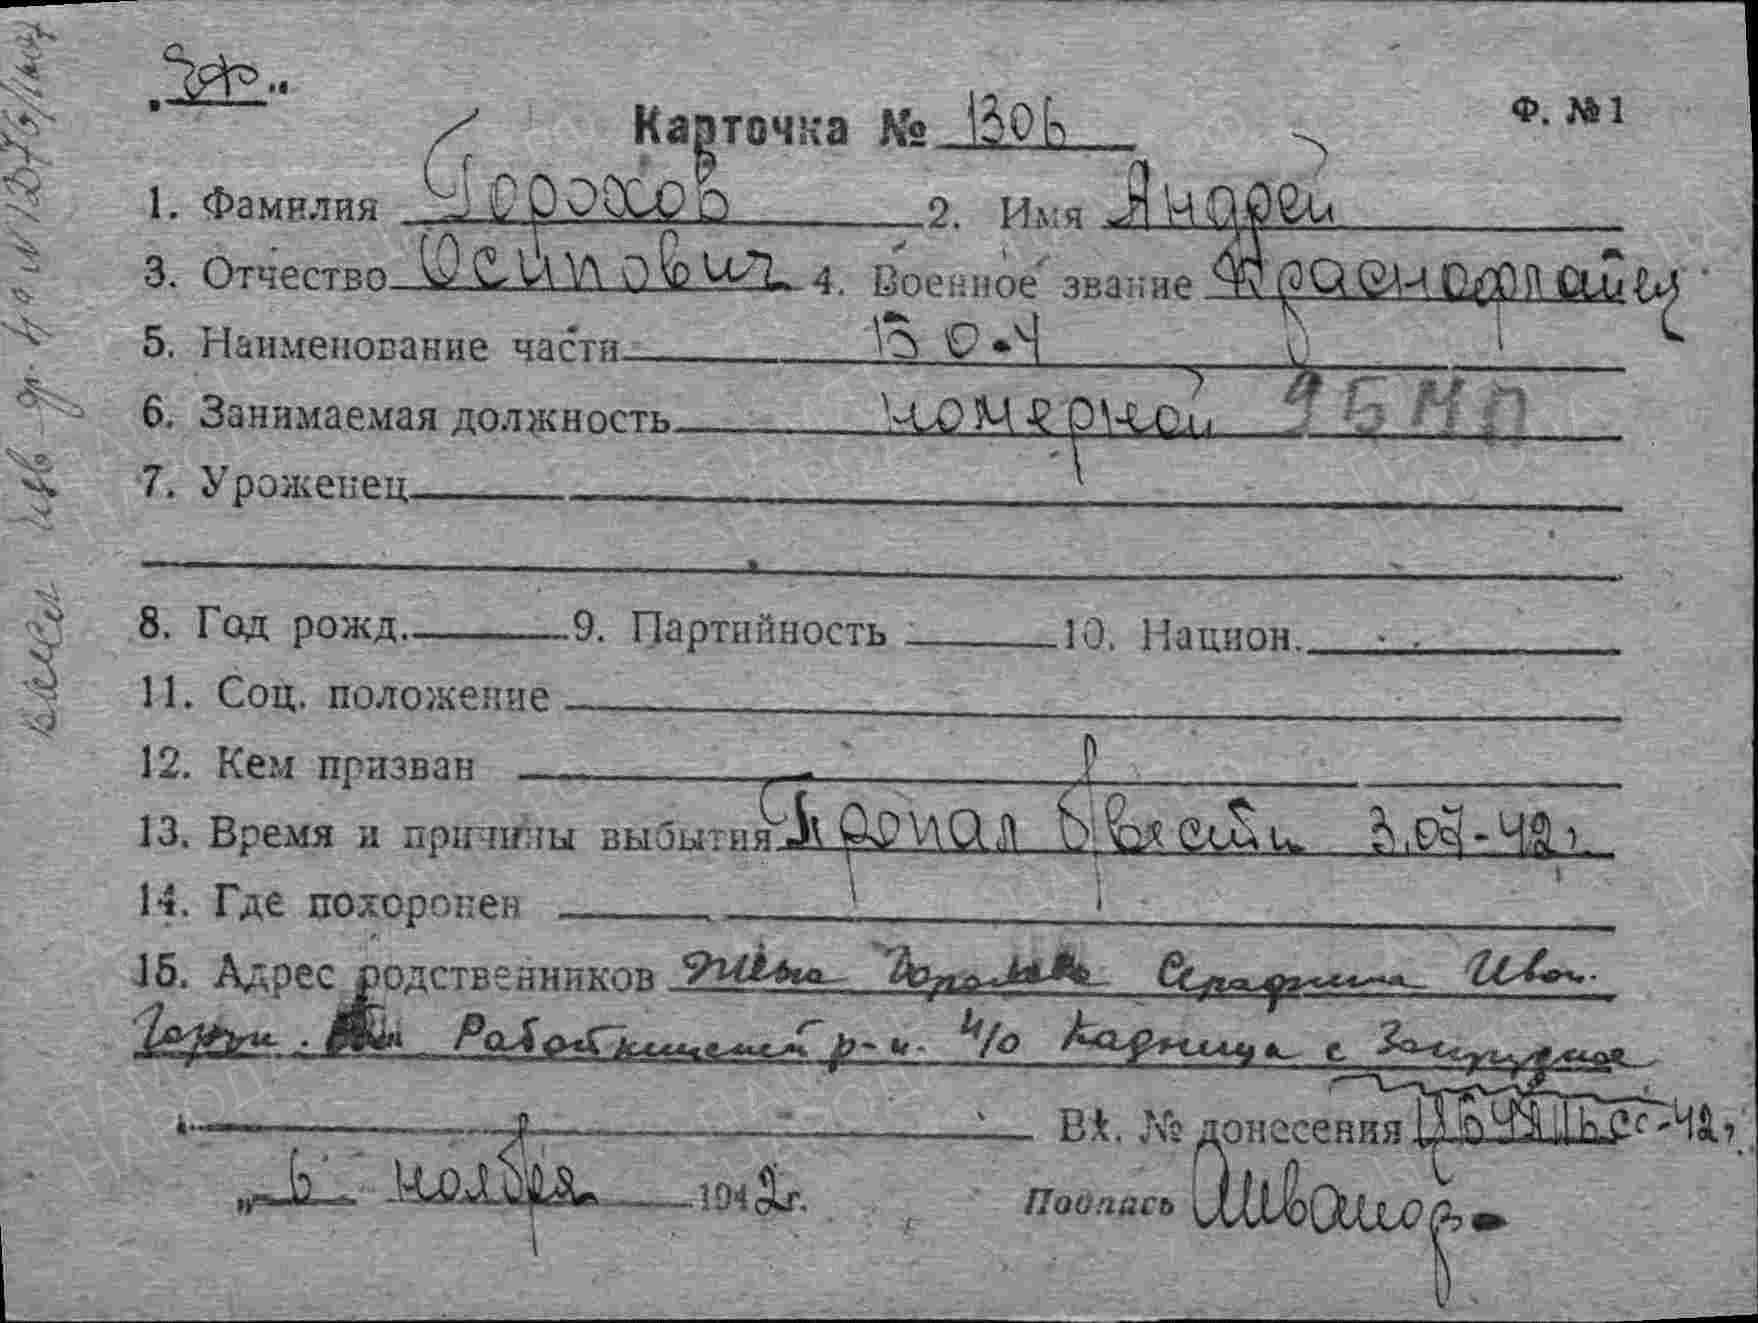 "ЧФ"
Карточка № 1306 Ф. № 1
1. Фамилия Горохов 2. Имя Андрей
3. Отчество Осипович 4. Военное звание Краснофлотец
5. Наименование части БО-4
6. Занимаемая должность номерной 9БМП
7. Уроженец
8. Год рожд. 9. Партийность 10. Национ.
11. Соц. положение
12. Кем призван
13. Время и причины выбытия Пропал б/вести 3.07-42г.
14. Где похоронен
15. Адрес родственников Жена Серафима Иван.
Горьк. Работкинский р-н. п/о Кадницы с Запрудное
Вх. № донесения -42г.
"6" ноября 1942г. Подпись